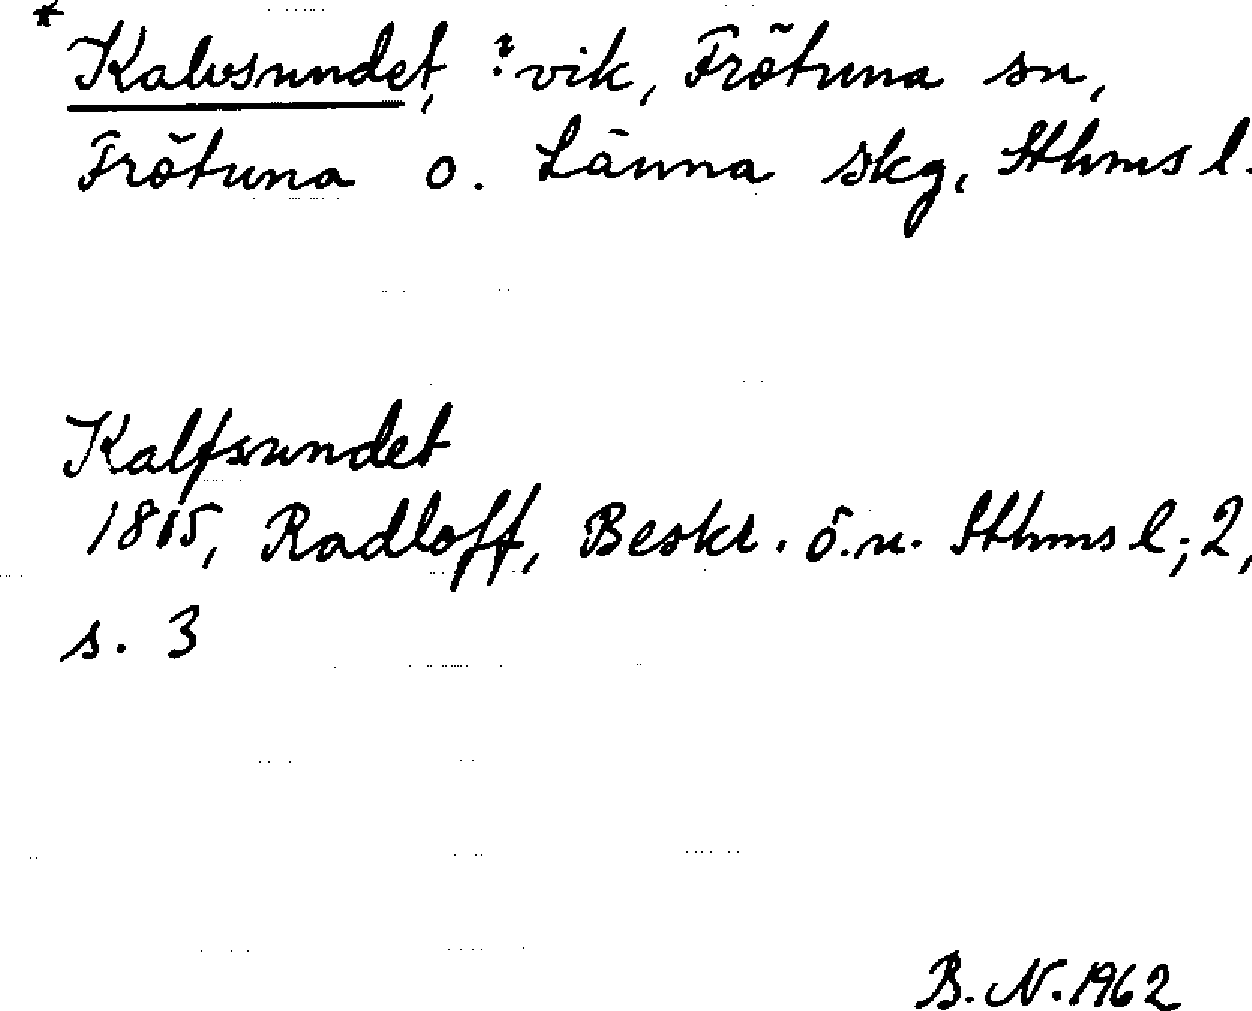 *Kalvsundet, ?vik, Frötuna sn,
Frötuna o. Länna skg, Sthms l.
Kalfsundet
1805, Radloff, Beskr. ö. n. Sthms l; 2,
s. 3
B. N. 1962